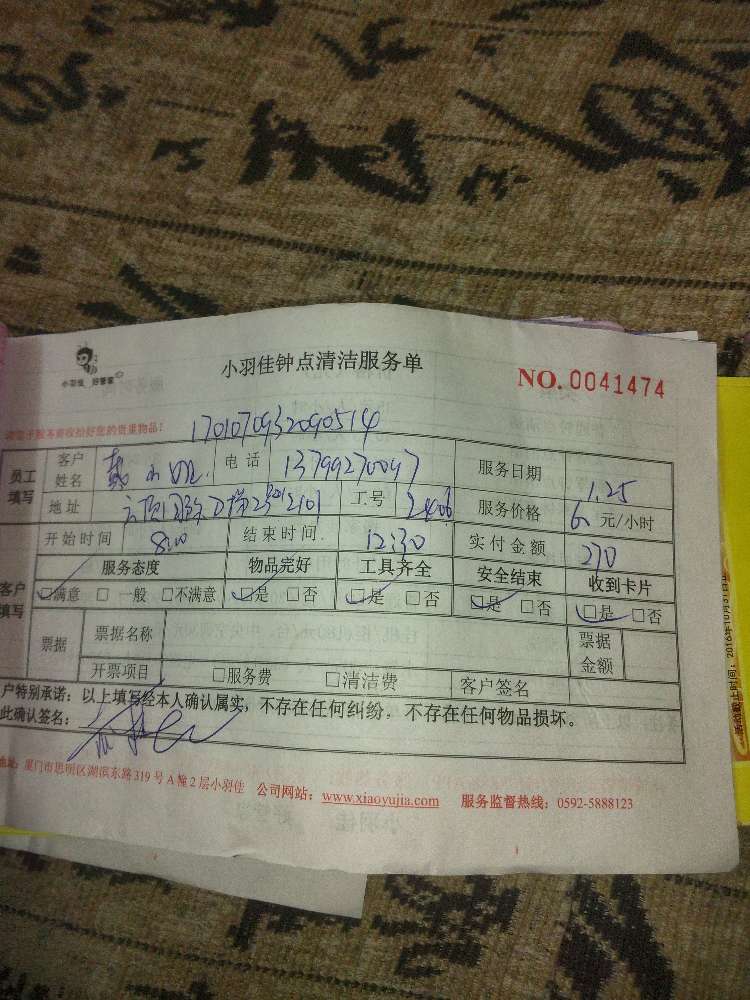 小羽佳 好管家
小羽佳钟点清洁服务单
NO. 0041474
请客户服务前收拾好您的贵重物品!
1701070932090514
员工填写 客户姓名 戴小姐 电话 13799270097 服务日期 1.25
地址 工号 2406 服务价格 6 元/小时
开始时间 8:00 结束时间 12:30 实付金额 270
客户填写 服务态度 物品完好 工具齐全 安全结束 收到卡片
☑满意 □一般 □不满意 ☑是 □否 ☑是 □否 ☑是 □否 ☑是 □否
票据 票据名称 票据金额
开票项目 □服务费 □清洁费 客户签名
户特别承诺:以上填写经本人确认属实,不存在任何纠纷,不存在任何物品损坏。
此确认签名:
地址:厦门市思明区湖滨东路319号A幢2层小羽佳 公司网站:www.xiaoyujia.com 服务监督热线:0592-5888123
活动截止时间:2016年10月31日